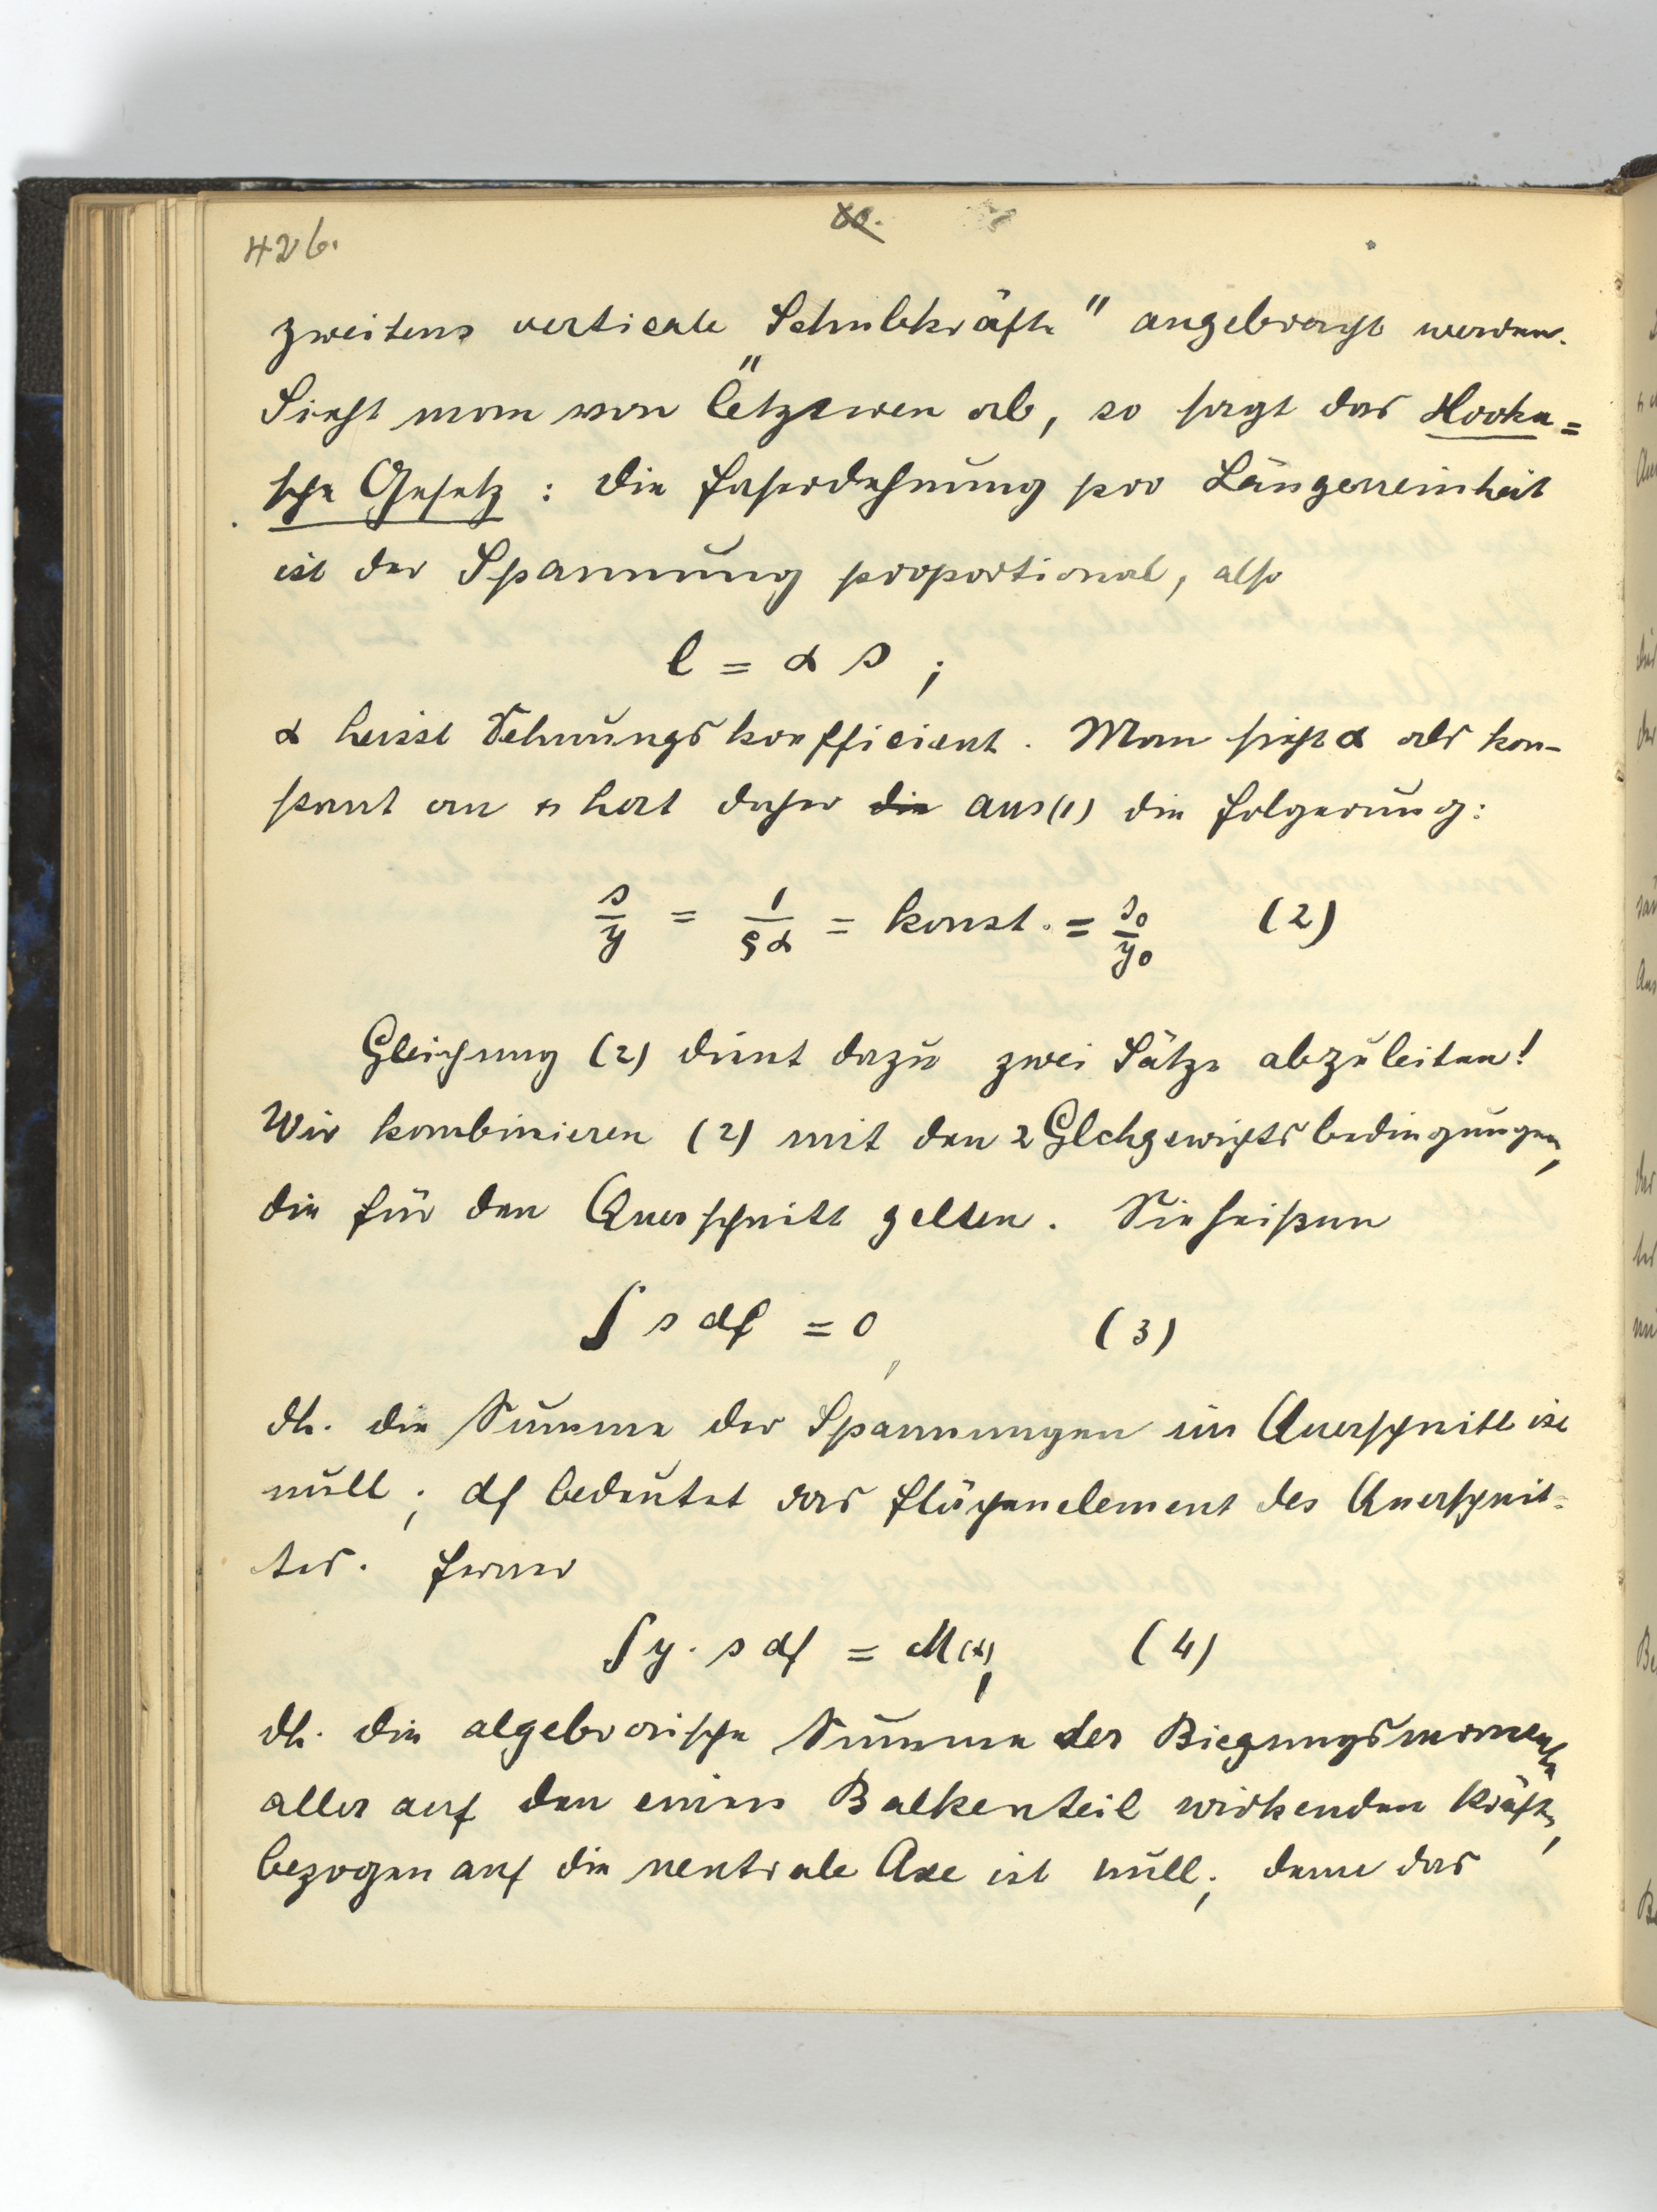 426.
80.
zweitens verticale „Schubkräfte" angebracht werden.
Sieht man von letzteren ab, so sagt das Hooke=
sche Gesetz: Die Faserdehnung pro Längeneinheit
ist der Spannung proportional, also
l = α s ;
α heisst Dehnungskoefficient. Man sieht α als kon-
stant an u hat daher die aus (1) die Folgerung:
s/y = 1/ρα = konst. = s₀/y₀ (2)
Gleichung (2) dient dazu zwei Sätze abzuleiten!
Wir kombinieren (2) mit den 2 Glchgewichtsbedingungen,
die für den Querschnitt gelten. Sie heißen
∫ s df = 0, (3)
dh. die Summe der Spannungen im Querschnitt ist
null; df bedeutet das Flächenelement des Querschnit-
tes. Ferner
∫ y · s df = M(x), (4)
dh. die algebraische Summe der Biegungsmomente
aller auf den einen Balkenteil wirkenden Kräfte,
bezogen auf die neutrale Axe ist null; denn das